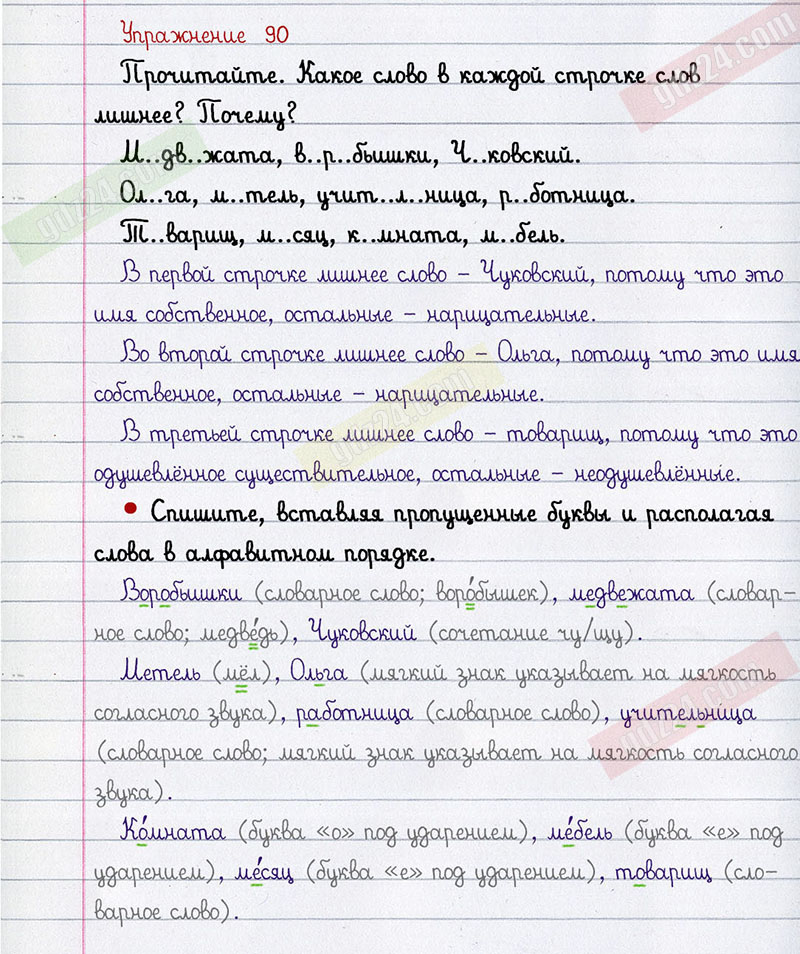 Упражнение 90
Прочитайте. Какое слово в каждой строчке слов
лишнее? Почему?
М..дв..жата, в..р..бышки, Ч..ковский.
Ол..га, м..тель, учит..л..ница, р..ботница.
Т..варищ, м..сяц, к..мната, м..бель.
В первой строчке лишнее слово – Чуковский, потому что это
имя собственное, остальные – нарицательные.
Во второй строчке лишнее слово – Ольга, потому что это имя
собственное, остальные – нарицательные.
В третьей строчке лишнее слово – товарищ, потому что это
одушевлённое существительное, остальные – неодушевлённые.
• Спишите, вставляя пропущенные буквы и располагая
слова в алфавитном порядке.
Воробышки (словарное слово; воро́бышек), медвежата (словар-
ное слово; медве́дь), Чуковский (сочетание чу/щу).
Метель (мёл), Ольга (мягкий знак указывает на мягкость
согласного звука), работница (словарное слово), учительница
(словарное слово; мягкий знак указывает на мягкость согласного
звука).
Ко́мната (буква «о» под ударением), ме́бель (буква «е» под
ударением), ме́сяц (буква «е» под ударением), товарищ (сло-
варное слово).
gdz24.com
gdz24.com
gdz24.com
gdz24.com